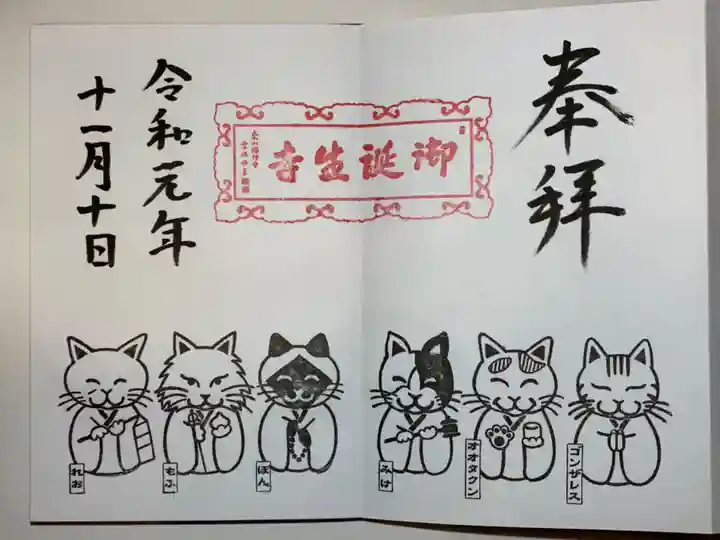 奉拝
御誕生寺
令和元年
十一月十日
れお
もふ
ぽん
みけ
オオタクン
ゴンザレス